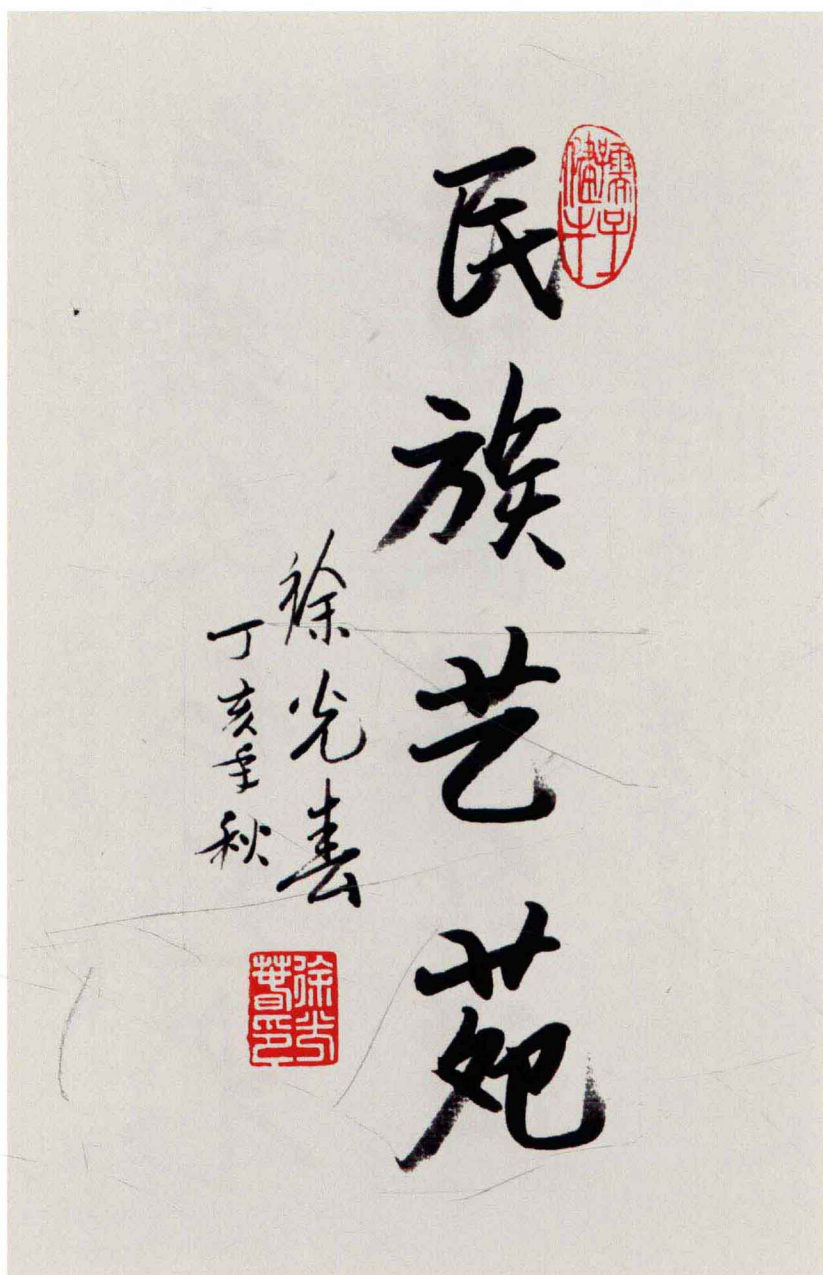 民族艺苑
徐光春
丁亥年秋
徐光春印